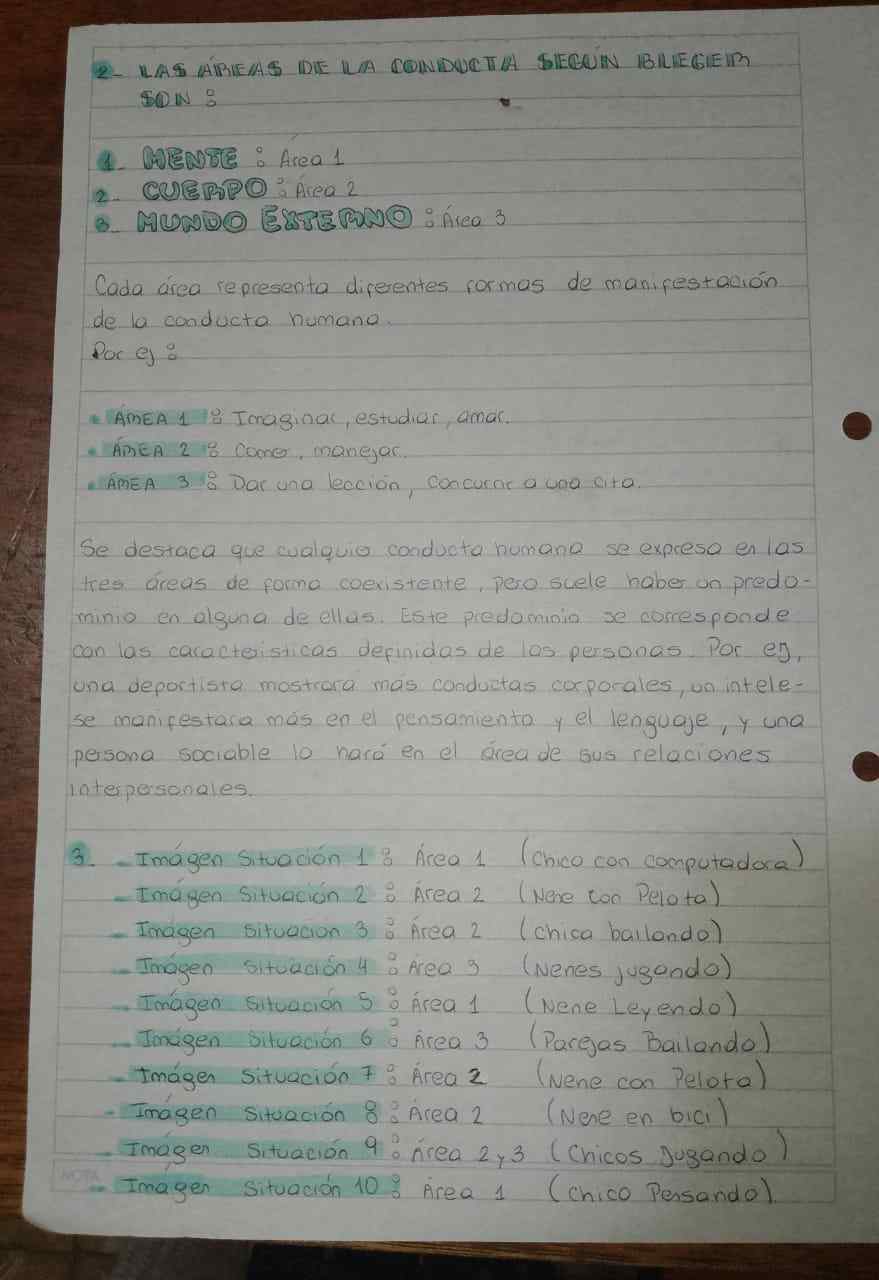 2- LAS ÁREAS DE LA CONDUCTA SEGÚN BLEGER
SON :
1- MENTE : Área 1
2- CUERPO : Área 2
3- MUNDO EXTERNO : Área 3
Cada área representa diferentes formas de manifestación
de la conducta humana.
Por ej :
• ÁREA 1 : Imaginar, estudiar, amar.
• ÁREA 2 : Comer, manejar.
• ÁREA 3 : Dar una lección, concurrir a una cita.
Se destaca que cualquier conducta humana se expresa en las
tres áreas de forma coexistente, pero suele haber un predo-
minio en alguna de ellas. Este predominio se corresponde
con las caracteristicas definidas de las personas. Por ej,
una deportista mostrara más conductas corporales, un intele-
se manifestara más en el pensamiento y el lenguaje, y una
persona sociable lo hará en el área de sus relaciones
interpersonales.
3. - Imágen Situación 1 : Área 1 (Chico con computadora)
- Imágen Situación 2 : Área 2 (Nene con Pelota)
- Imágen Situación 3 : Área 2 (Chica bailando)
- Imágen Situación 4 : Área 3 (Nenes jugando)
- Imágen Situación 5 : Área 1 (Nene Leyendo)
- Imágen Situación 6 : Área 3 (Parejas Bailando)
- Imágen Situación 7 : Área 2 (Nene con Pelota)
- Imágen Situación 8 : Área 2 (Nene en bici)
- Imágen Situación 9 : Área 2 y 3 (Chicos Jugando)
NOTA
- Imágen Situación 10 : Área 1 (Chico Pensando)